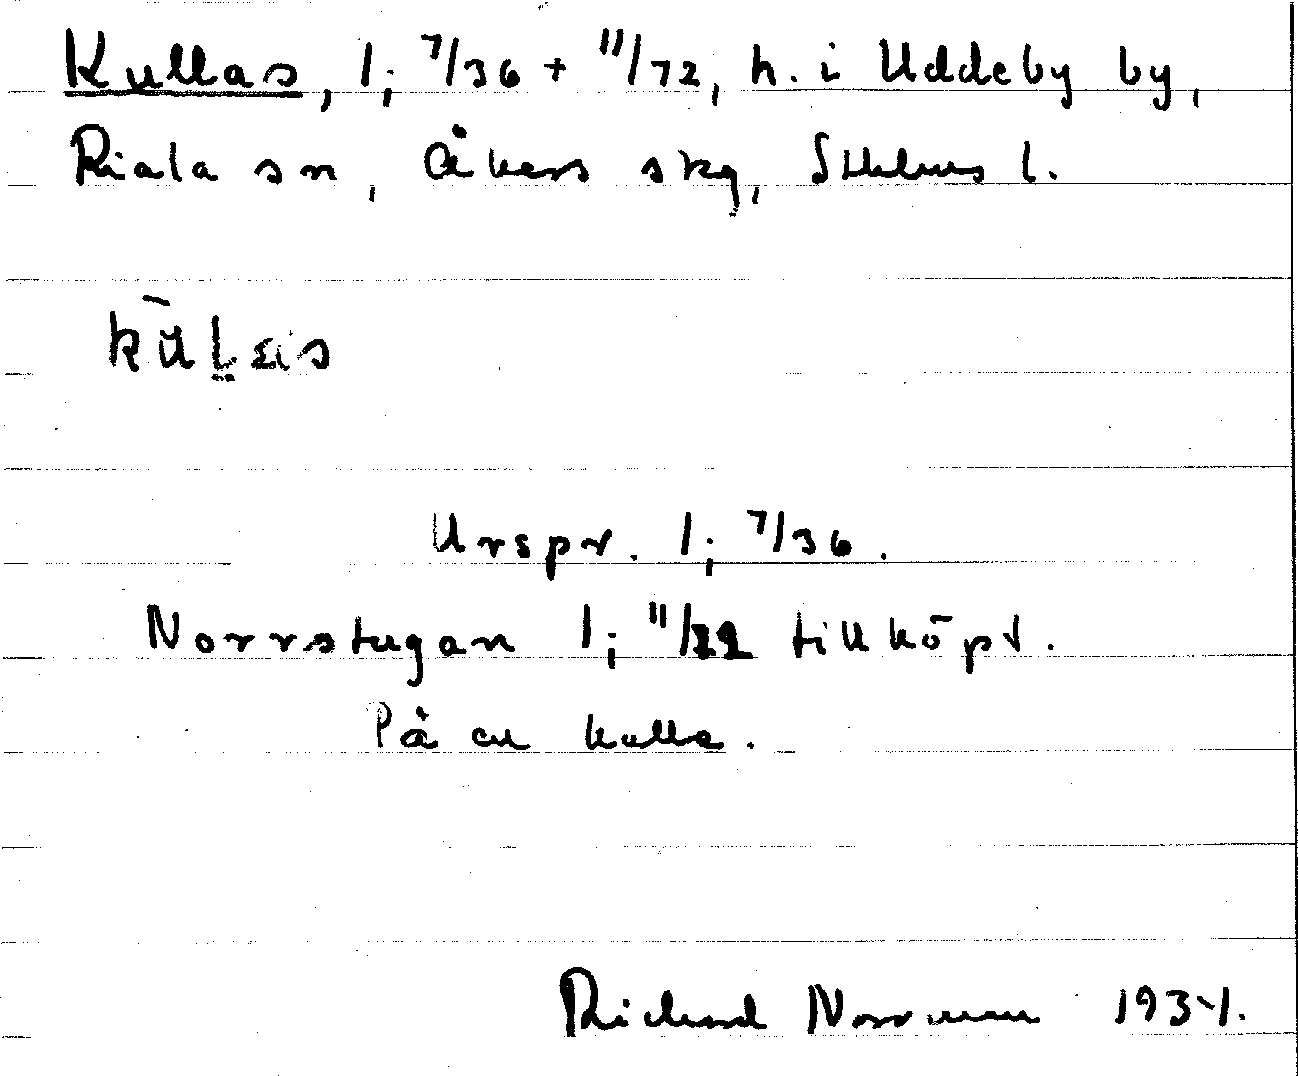 Kullas, 1; 7/36 + 11/72, h. i Uddeby by,
Riala sn, Åkers skg, Sthlms l.
Urspr. 1; 7/36.
Norrstugan 1; 11/72 tillköpt.
På en kulle.
Richard Norrman 1934.